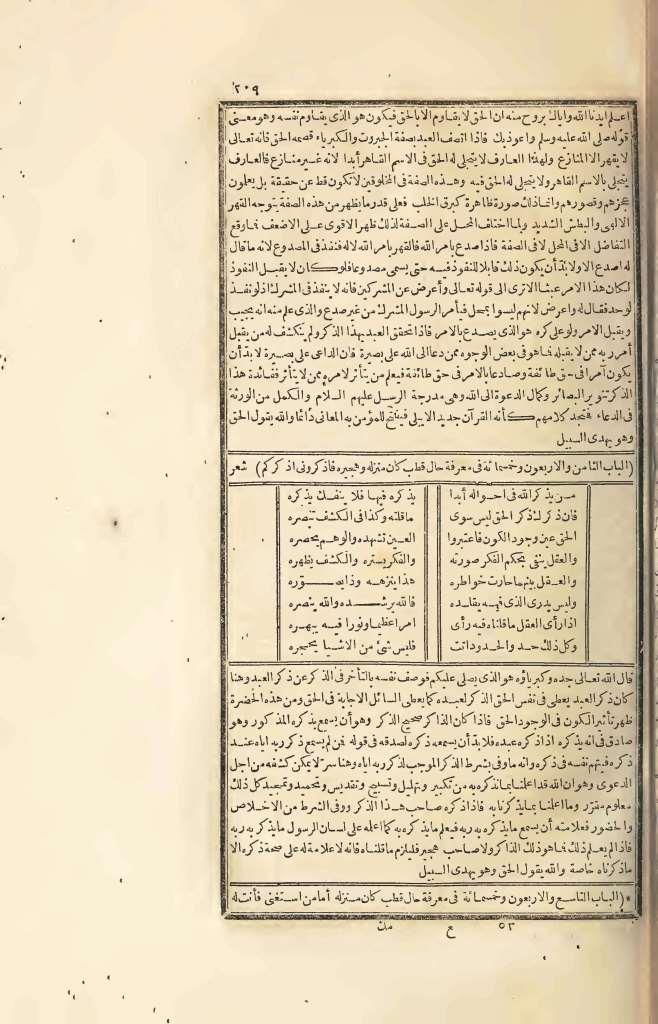 ٢٠٩
اعلم أيدنا الله واياك بروح منه ان الحق لا يقاوم الا بالحق فيكون هو الذى يقاوم نفسه وهو معنى
قوله صلى الله عليه وسلم وأعوذ بك منك فاذا اتصف العبد بصفة الجبروت والكبرياء قصمه الحق فانه تعالى
لا يقهر الا المنازع ولهذا العارف لا يتجلى له الحق فى الاسم القاهر أبدا لانه غير منازع فالعارف
يتجلى بالاسم القاهر ولا يتجلى له الحق فيه وهذه الصفة فى المخلوقين لا تكون قط عن حقيقة بل يعلمون
عجزهم وقصورهم وانما ذلك صورة ظاهرة كبرق الخلب فعلى قدر ما يظهر من هذه الصفة يتوجه القهر
الالهى والبطش الشديد ولما اختلف المحل على الصفة لذلك ظهر الاقوى على الاضعف فما وقع
التفاضل الا فى المحل لا فى الصفة فاذا صدع بأمر الله فالقهر بأمر الله لا له فنفذ فى المصدوع لانه ما قال
له اصدع الا ولا بد أن يكون ذلك قابلا للنفوذ فيه حتى يسمى مصدوعا فلو كان لا يقبل النفوذ
لكان هذا الامر عبثا الا ترى الى قوله تعالى وأعرض عن المشركين فانه لا ينفذ فى المشرك اذ لو نفذ
لوحد فقال له واعرض لانهم ليسوا بمحل فيأمر الرسول المشرك من غير صدع والذى علم منه انه يجيب
ويقبل الامر ولو على كره هو الذى يصدع بالامر فاذا تحقق العبد بهذا الذكر ولم ينكشف له من يقبل
أمر ربه ممن لا يقبله فما هو فى بعض الوجوه ممن دعا الى الله على بصيرة فان الداعى على بصيرة لا بد أن
يكون آمرا فى حق طائفة وصادعا بالامر فى حق طائفة فيعلم من يتأثر لامره ممن لا يتأثر ففائدة هذا
الذكر تنوير البصائر وكمال الدعوة الى الله وهى مدرجة الرسل عليهم السلام والكمل من الورثة
فى الدعاء فتجد كلامهم كأنه القرآن جديد الا يبلى فينتج للمؤمن به المعانى دائما والله يقول الحق
وهو يهدى السبيل
(الباب الثامن والاربعون وخمسمائة فى معرفة حال قطب كان منزله وهجيره فاذكرونى اذكركم) شعر
من يذكر الله فى احواله أبدا يذكره فيها فلا ينفك يذكره
فان ذكرك ذكر الحق ليس سوى ما قلته وكذا فى الكشف تبصره
الحق عن وجود الكون فاعتبروا العين تشهده والوهم يحصره
والعقل ينفى بحكم الفكر صورته والفكر يستره والكشف يظهره
والعقل بينهما حارت خواطره هذا ينزهه وذا يصوّره
وليس يدرى الذى فيه يقلده فالله يرشده والله ينصره
اذا رأى العقل ما قلناه فيه رأى امرا عظيما ونورا فيه يبهره
وكل ذلك حد والحدود انت فليس شئ من الاشيا يحيره
قال الله تعالى جده وكبرياؤه هو الذى يصلى عليكم فوصف نفسه بالتأخر فى الذكر عن ذكر العبد وهنا
كان ذكر العبد يعطى فى نفس الحق الذكر لعبده كما يعطى السائل الاجابة فى الحق ومن هذه الحضرة
ظهر تأثير الكون فى الوجود الحق فاذا كان الذاكر صحيح الذكر وهو أن يسمع بذكره المذكور وهو
صادق فى انه يذكره اذا ذكره عبده فلا بد أن يسمعه ذكره لصدقه فى قوله فمن لم يسمع ذكر ربه اياه عند
ذكره فيتهم نفسه فى ذكره وانه ما وفى بشرط الذكر الموجب لذكر ربه اياه وهنا سر لا يمكن كشفه من اجل
الدعوى وهو ان الله قد اعلمنا بما نذكره به من تكبير وتهليل وتسبيح وتقديس وتحميد وتمجيد كل ذلك
معلوم مقرّر وما اعلمنا بما يذكرنا به فاذا ذكره صاحب هذا الذكر ووفى الشرط من الاخلاص
والحضور فعلامته أن يسمع ما يذكره به ربه فيعلم ما يذكره به كما اعلمه على لسان الرسول ما يذكر به ربه
فاذا لم يعلم ذلك فما هو ذلك الذاكر ولا صاحب هجير فليلزم ما قلناه فانه لا علامة له على صحة ذكره الا
ما ذكرناه خاصة والله يقول الحق وهو يهدى السبيل
* (الباب التاسع والاربعون وخمسمائة فى معرفة حال قطب كان منزله أما من استغنى فأنت له
٥٣ ع مك